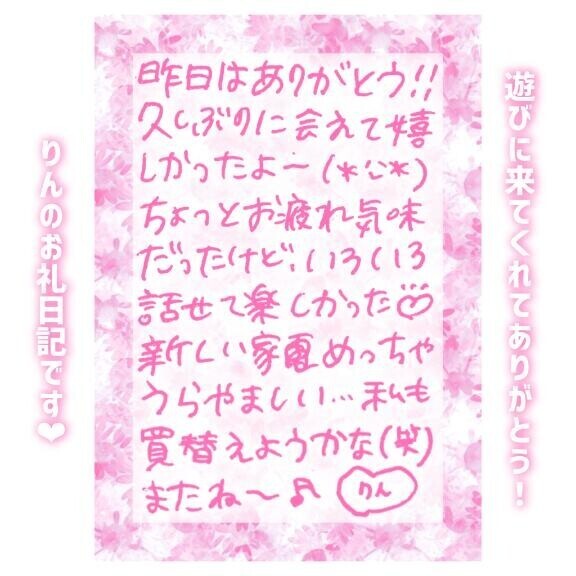 遊びに来てくれてありがとう!
昨日はありがとう!!
久しぶりに会えて嬉
しかったよ〜(*^^*)
ちょっとお疲れ気味
だったけど、いろいろ
話せて楽しかった♡
新しい家電めっちゃ
うらやましい…私も
買替えようかな(笑)
またね〜♬
りん
りんのお礼日記です❤